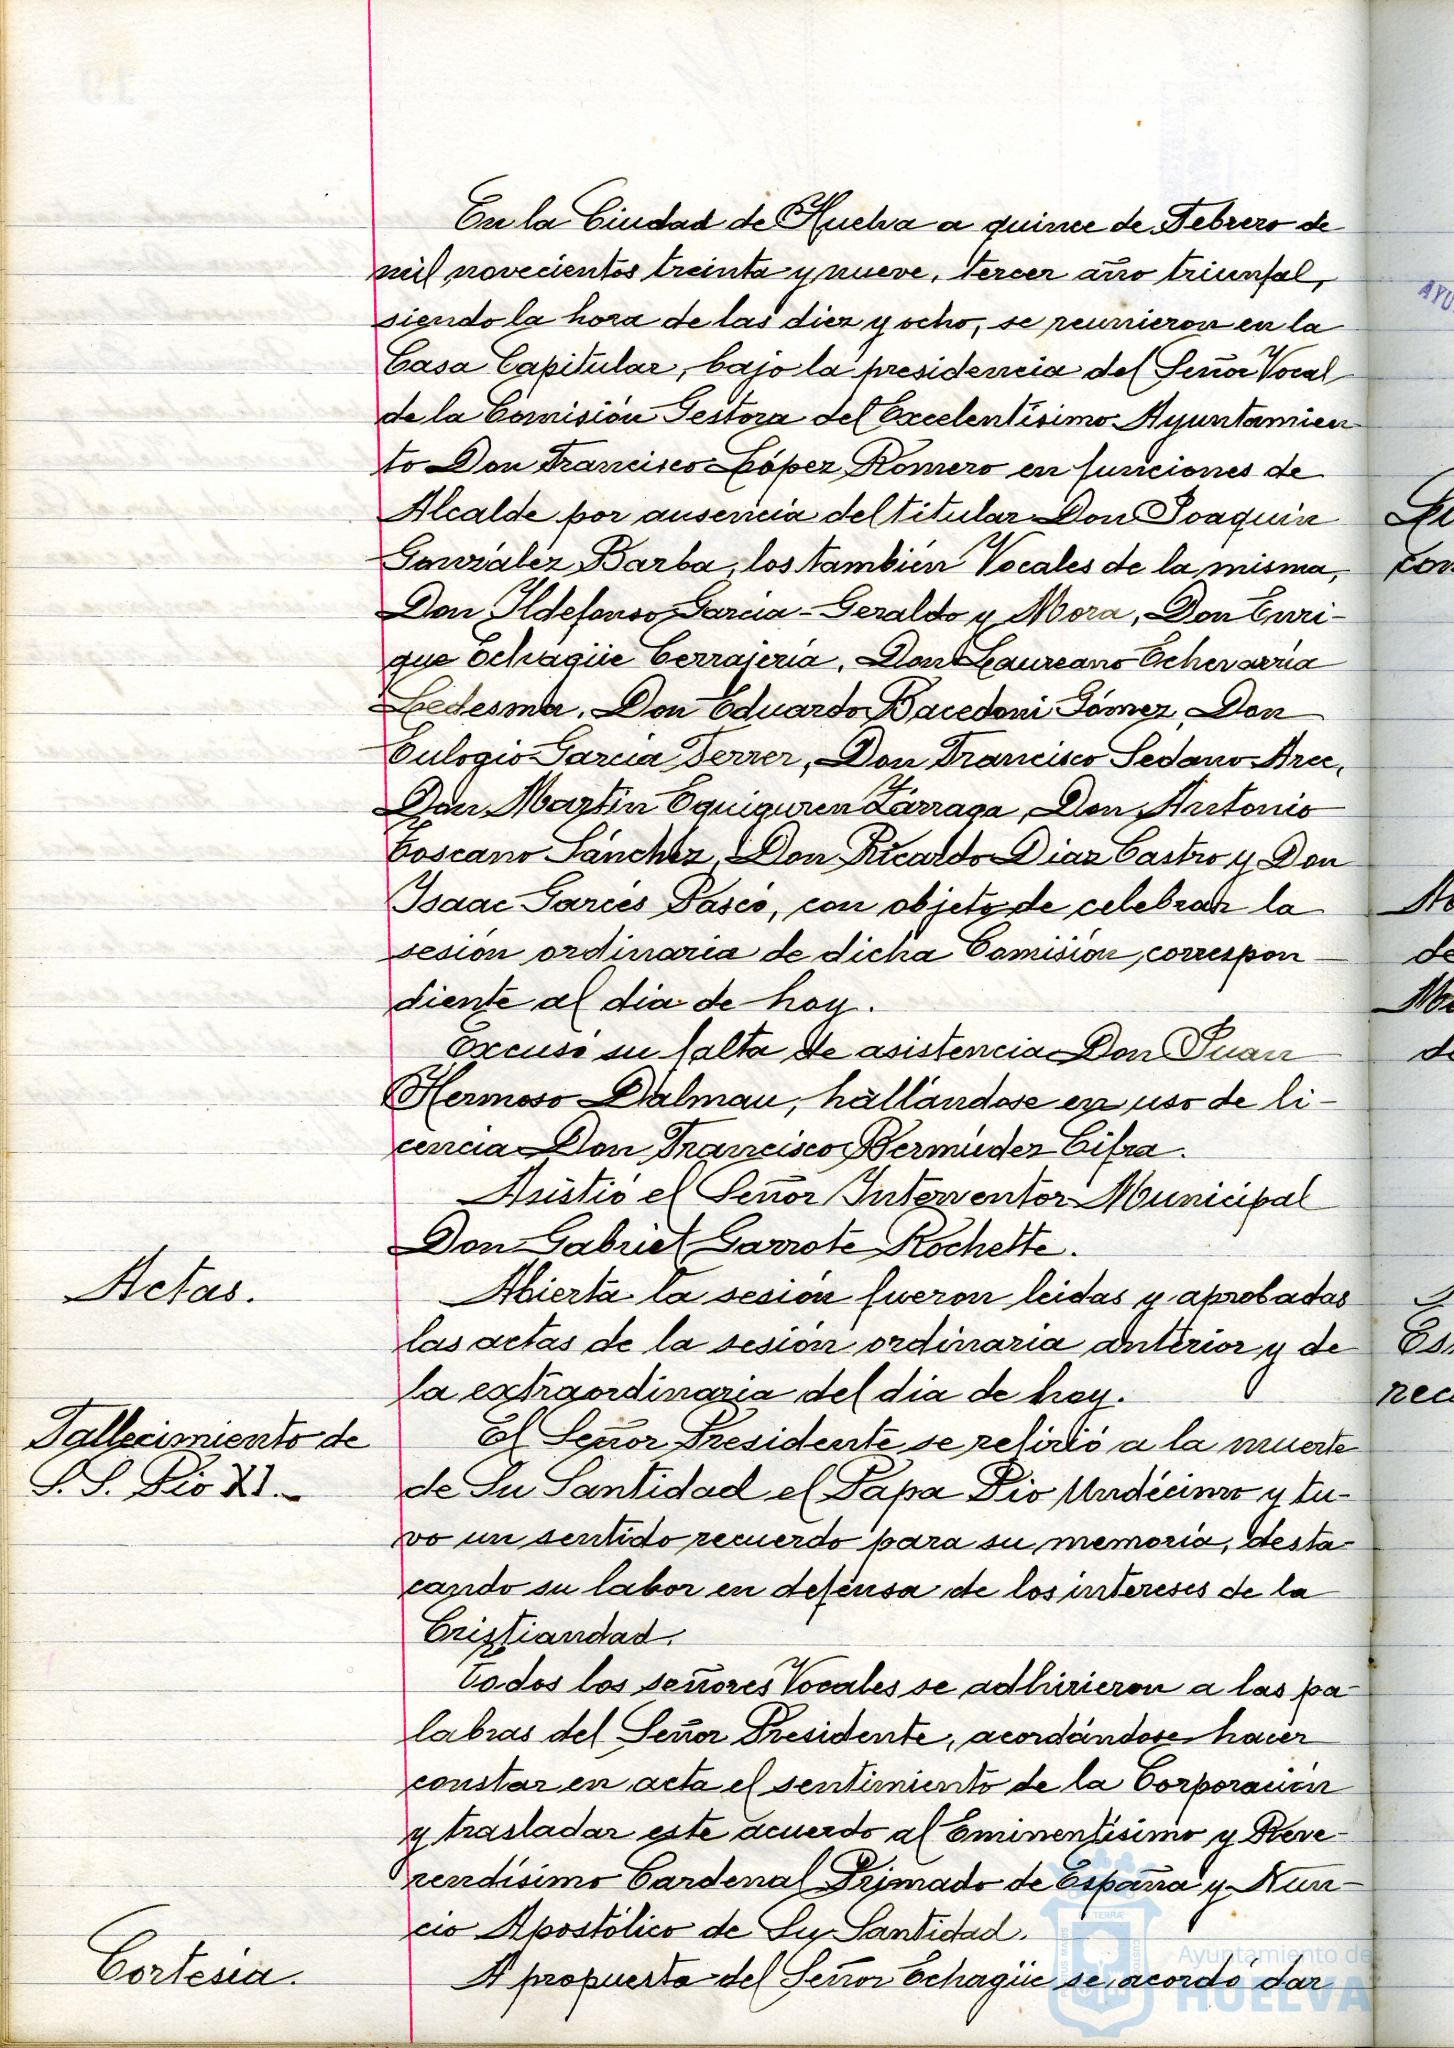 En la Ciudad de Huelva a quince de Febrero de
mil novecientos treinta y nueve, tercer año triunfal,
siendo la hora de las diez y ocho, se reunieron en la
Casa Capitular, bajo la presidencia del Señor Vocal
de la Comisión Gestora del Excelentísimo Ayuntamien
to Don Francisco López Romero en funciones de
Alcalde por ausencia del titular Don Joaquín
González Barba, los también Vocales de la misma,
Don Ildefonso García-Geraldo y Mora, Don Enri-
que Echagüe Cerrajería, Don Laureano Echevarría
Ledesma, Don Eduardo Bacedoni Gómez, Don
Eulogio García Ferrer, Don Francisco Sedano Arce,
Don Martín Eguiguren Zárraga, Don Antonio
Toscano Sánchez, Don Ricardo Díaz Castro y Don
Isaac Garcés Pascó, con objeto de celebrar la
sesión ordinaria de dicha Comisión, correspon-
diente al día de hoy.
Excusó su falta de asistencia Don Juan
Hermoso Dalmau, hallándose en uso de li-
cencia Don Francisco Bermúdez Cifra.
Asistió el Señor Interventor Municipal
Don Gabriel Garrote Rochette.
Actas.
Abierta la sesión fueron leidas y aprobadas
las actas de la sesión ordinaria anterior y de
la extraordinaria del día de hoy.
Fallecimiento de
S. S. Pio XI.-
El Señor Presidente se refirió a la muerte
de Su Santidad el Papa Pio Undécimo y tu-
vo un sentido recuerdo para su memoria, desta-
cando su labor en defensa de los intereses de la
Cristiandad.
Todos los señores Vocales se adhirieron a las pa-
labras del Señor Presidente, acordándose hacer
constar en acta el sentimiento de la Corporación
y trasladar este acuerdo al Eminentísimo y Reve-
rendísimo Cardenal Primado de España y Nun-
cio Apostólico de Su Santidad.
Cortesía.
A propuesta del Señor Echagüe se acordó dar
Ayuntamiento de
HUELVA